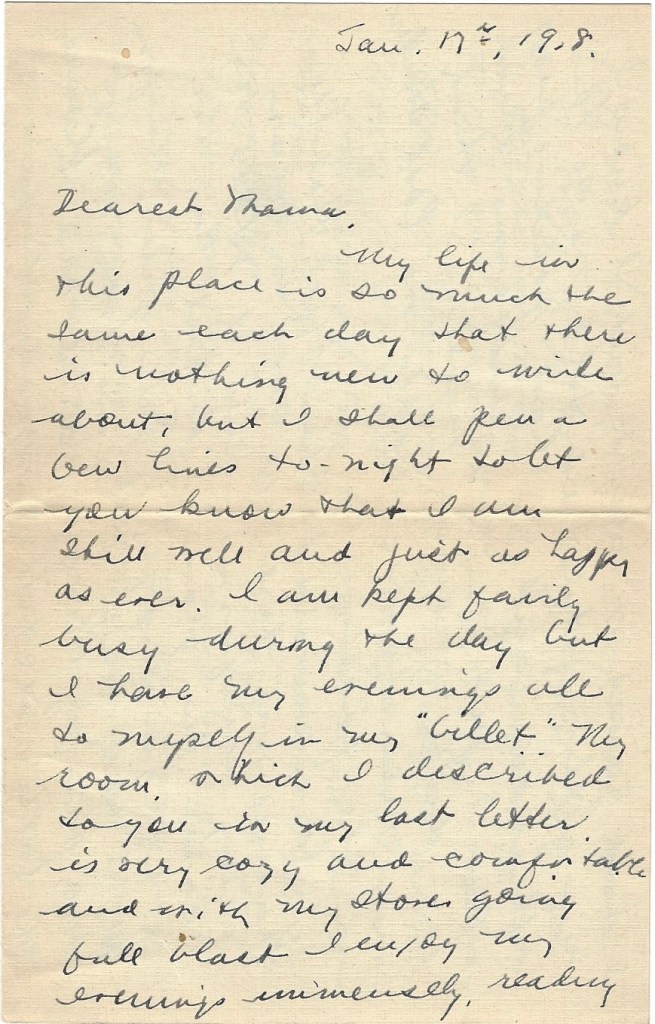 Jan. 17th, 1918.
Dearest Mama,
My life in
this place is so much the
same each day that there
is nothing new to write
about, but I shall pen a
few lines to-night to let
you know that I am
still well and just as happy
as ever. I am kept fairly
busy during the day but
I have my evenings all
to myself in my "billet" My
room, which I described
to you in my last letter,
is very cozy and comfortable
and with my stove going
full blast I enjoy my
evenings immensely, reading